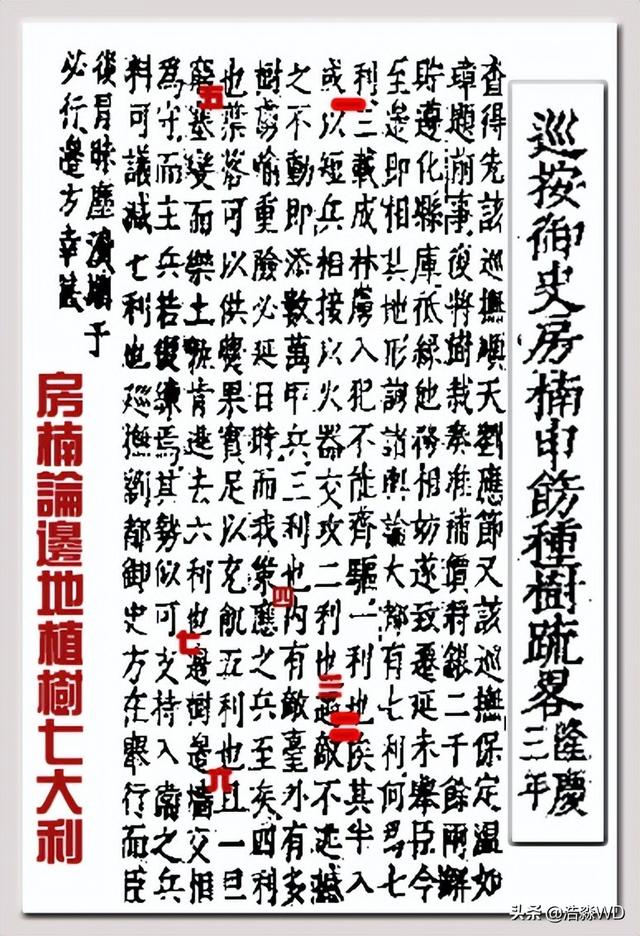 巡按御史房楠申飭種樹疏畧 隆慶三年
查得先該巡撫順天劉應節又該巡撫保定温如
璋題事後將樹栽奏准價銀二千餘兩解
貯遵化縣庫祗緣地務相妨遂致遷延未舉臣今
至邊即相其地形詢諸輿論大都有七利何爲七
利三載成林虜入犯不能齊驅一利也俟其半入
或以短兵相接以火器交攻二利也遇敵不進撼
之不動即添數萬甲兵三利也内有敵臺外有
樹虜踰重險必延日時而我策應之兵至矣四利
也葉落可以供爨果實足以充飢五利也且一旦
窮塞變而樂土孰肯逃去六利也邊樹邊墻交相
爲守而主兵若練焉其勢似可支持入衛之兵
料可議減七利也巡撫劉都御史方在舉行而臣
復冒時塵瀆于
必行邊方幸甚
一
二
三
四
五
六
七
房楠論邊地植樹七大利
头条 @浩淼WD